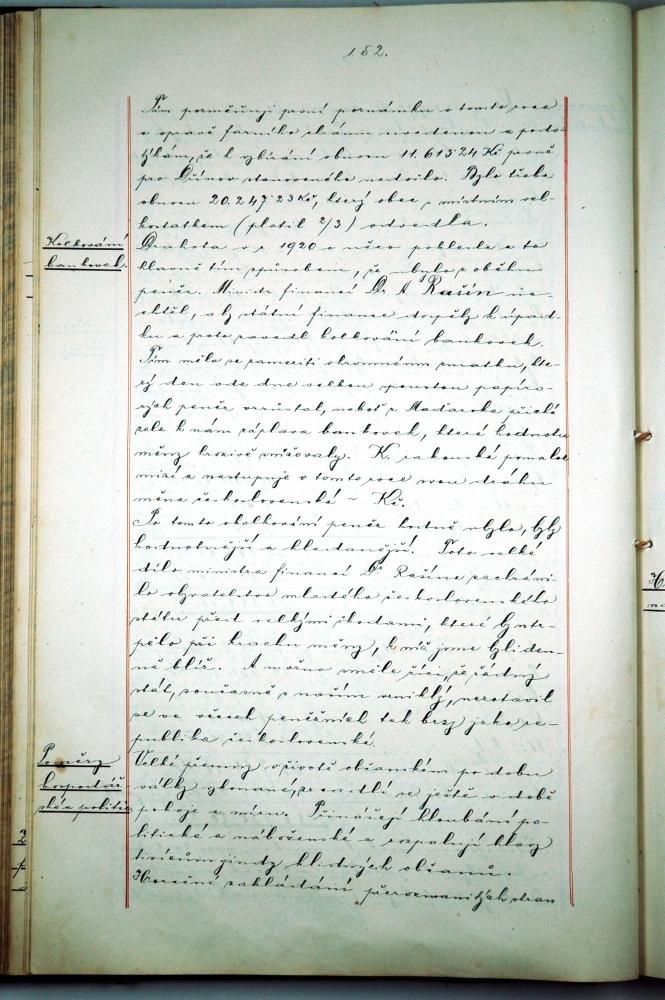 152.
Tím poměňuji první poznámku o tomto roce
o opravě farního chrámu uvedenou a podo-
týkám, že k vybírání obnosu 11.613·24 Kč prvně
pro Dřínov stanoveného nedošlo. Bylo třeba
obnosu 20.247·23 Kč, který obec s místním vel-
kostatkem (platil 2/3) odvedla.
Kolkování
bankovek.
Drahota v r. 1920 o něco poklesla a to
hlavně tím způsobem, že ubylo z oběhu
peněz. Ministr financí Dr. A. Rašín ne-
chtěl, aby státní finance dospěly k úpad-
ku a proto provedl kolkování bankovek.
Tím mělo se zameziti ohromnému zmatku, kte-
rý den ode dne velkou spoustou papíro-
vých peněz vzrůstal, neboť z Maďarska přichá-
zela k nám záplava bankovek, které hodnotu
měny hrozivě snižovaly. K. rakouská pomalu
mizí a nastupuje v tomto roce svou dráhu
měna československá ~ Kč.
Po tomto okolkování peněz hodně ubylo, byly
hodnotnější a hledanější. Toto velké
dílo ministra financí Dr. Rašína zachráni-
lo obyvatelstvo mladého československého
státu před velkými škodami, které by utr-
pělo při krachu měny, k níž jsme byli den-
ně blíž. A možno směle říci, že žádný
stát, současně s naším vzniklý, nezotavil
se ve věcech peněžních tak brzy jako re-
publika československá.
Poměry
hospodář-
ské a politic.
Velké přesuny v životě občanském po dobu
války vykonané, zrcadlí se ještě v době
pokoje a míru. Přinášejí hloubání po-
litické a náboženské a rozpalují hlavy
tisícům jindy klidných občanů.
Horečné zakládání přerozmanitých stran